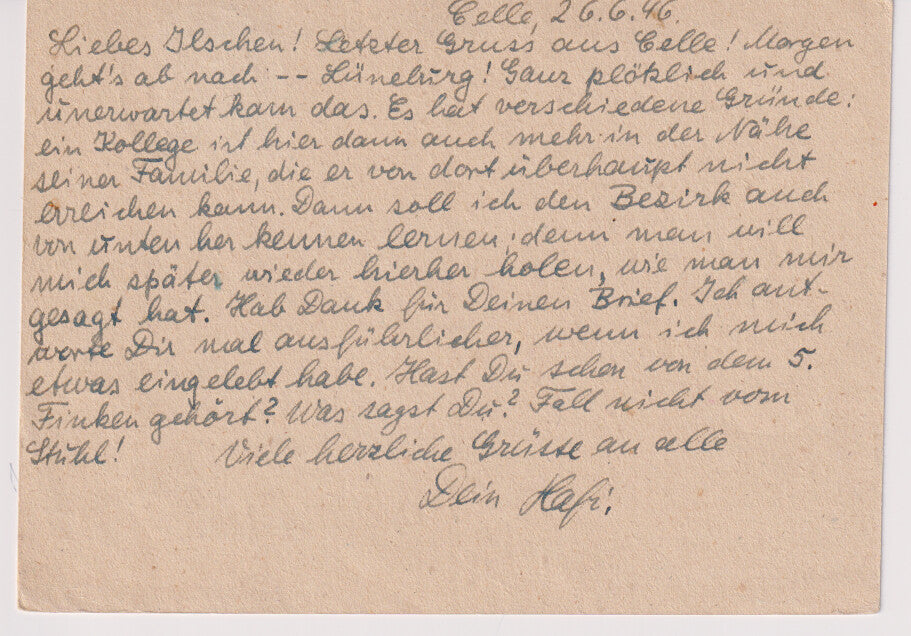 Celle, 26.6.46.
Liebes Ilschen! Letzter Gruss aus Celle! Morgen
geht's ab nach -- Lüneburg! Ganz plötzlich und
unerwartet kam das. Es hat verschiedene Gründe:
ein Kollege ist hier dann auch mehr in der Nähe
seiner Familie, die er von dort überhaupt nicht
erreichen kann. Dann soll ich den Bezirk auch
von unten her kennen lernen, denn man will
mich später wieder hierher holen, wie man mir
gesagt hat. Hab Dank für Deinen Brief. Ich ant-
worte Dir mal ausführlicher, wenn ich mich
etwas eingelebt habe. Hast Du schon von dem 5.
Finken gehört? Was sagst Du? Fall nicht vom
Stuhl! Viele herzliche Grüsse an alle
Dein Hafi.